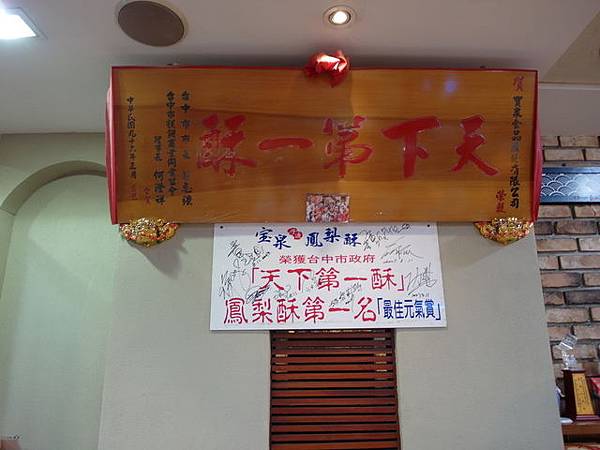 賀
寶泉食品
有限公司
榮獲
天下第一酥
台中市市長
台中市糕餅商業同業公會
理事長 何澄祥
中華民國九十六年三月
宝泉 鳳梨酥
榮獲台中市政府
「天下第一酥」
鳳梨酥第一名「最佳元氣賞」